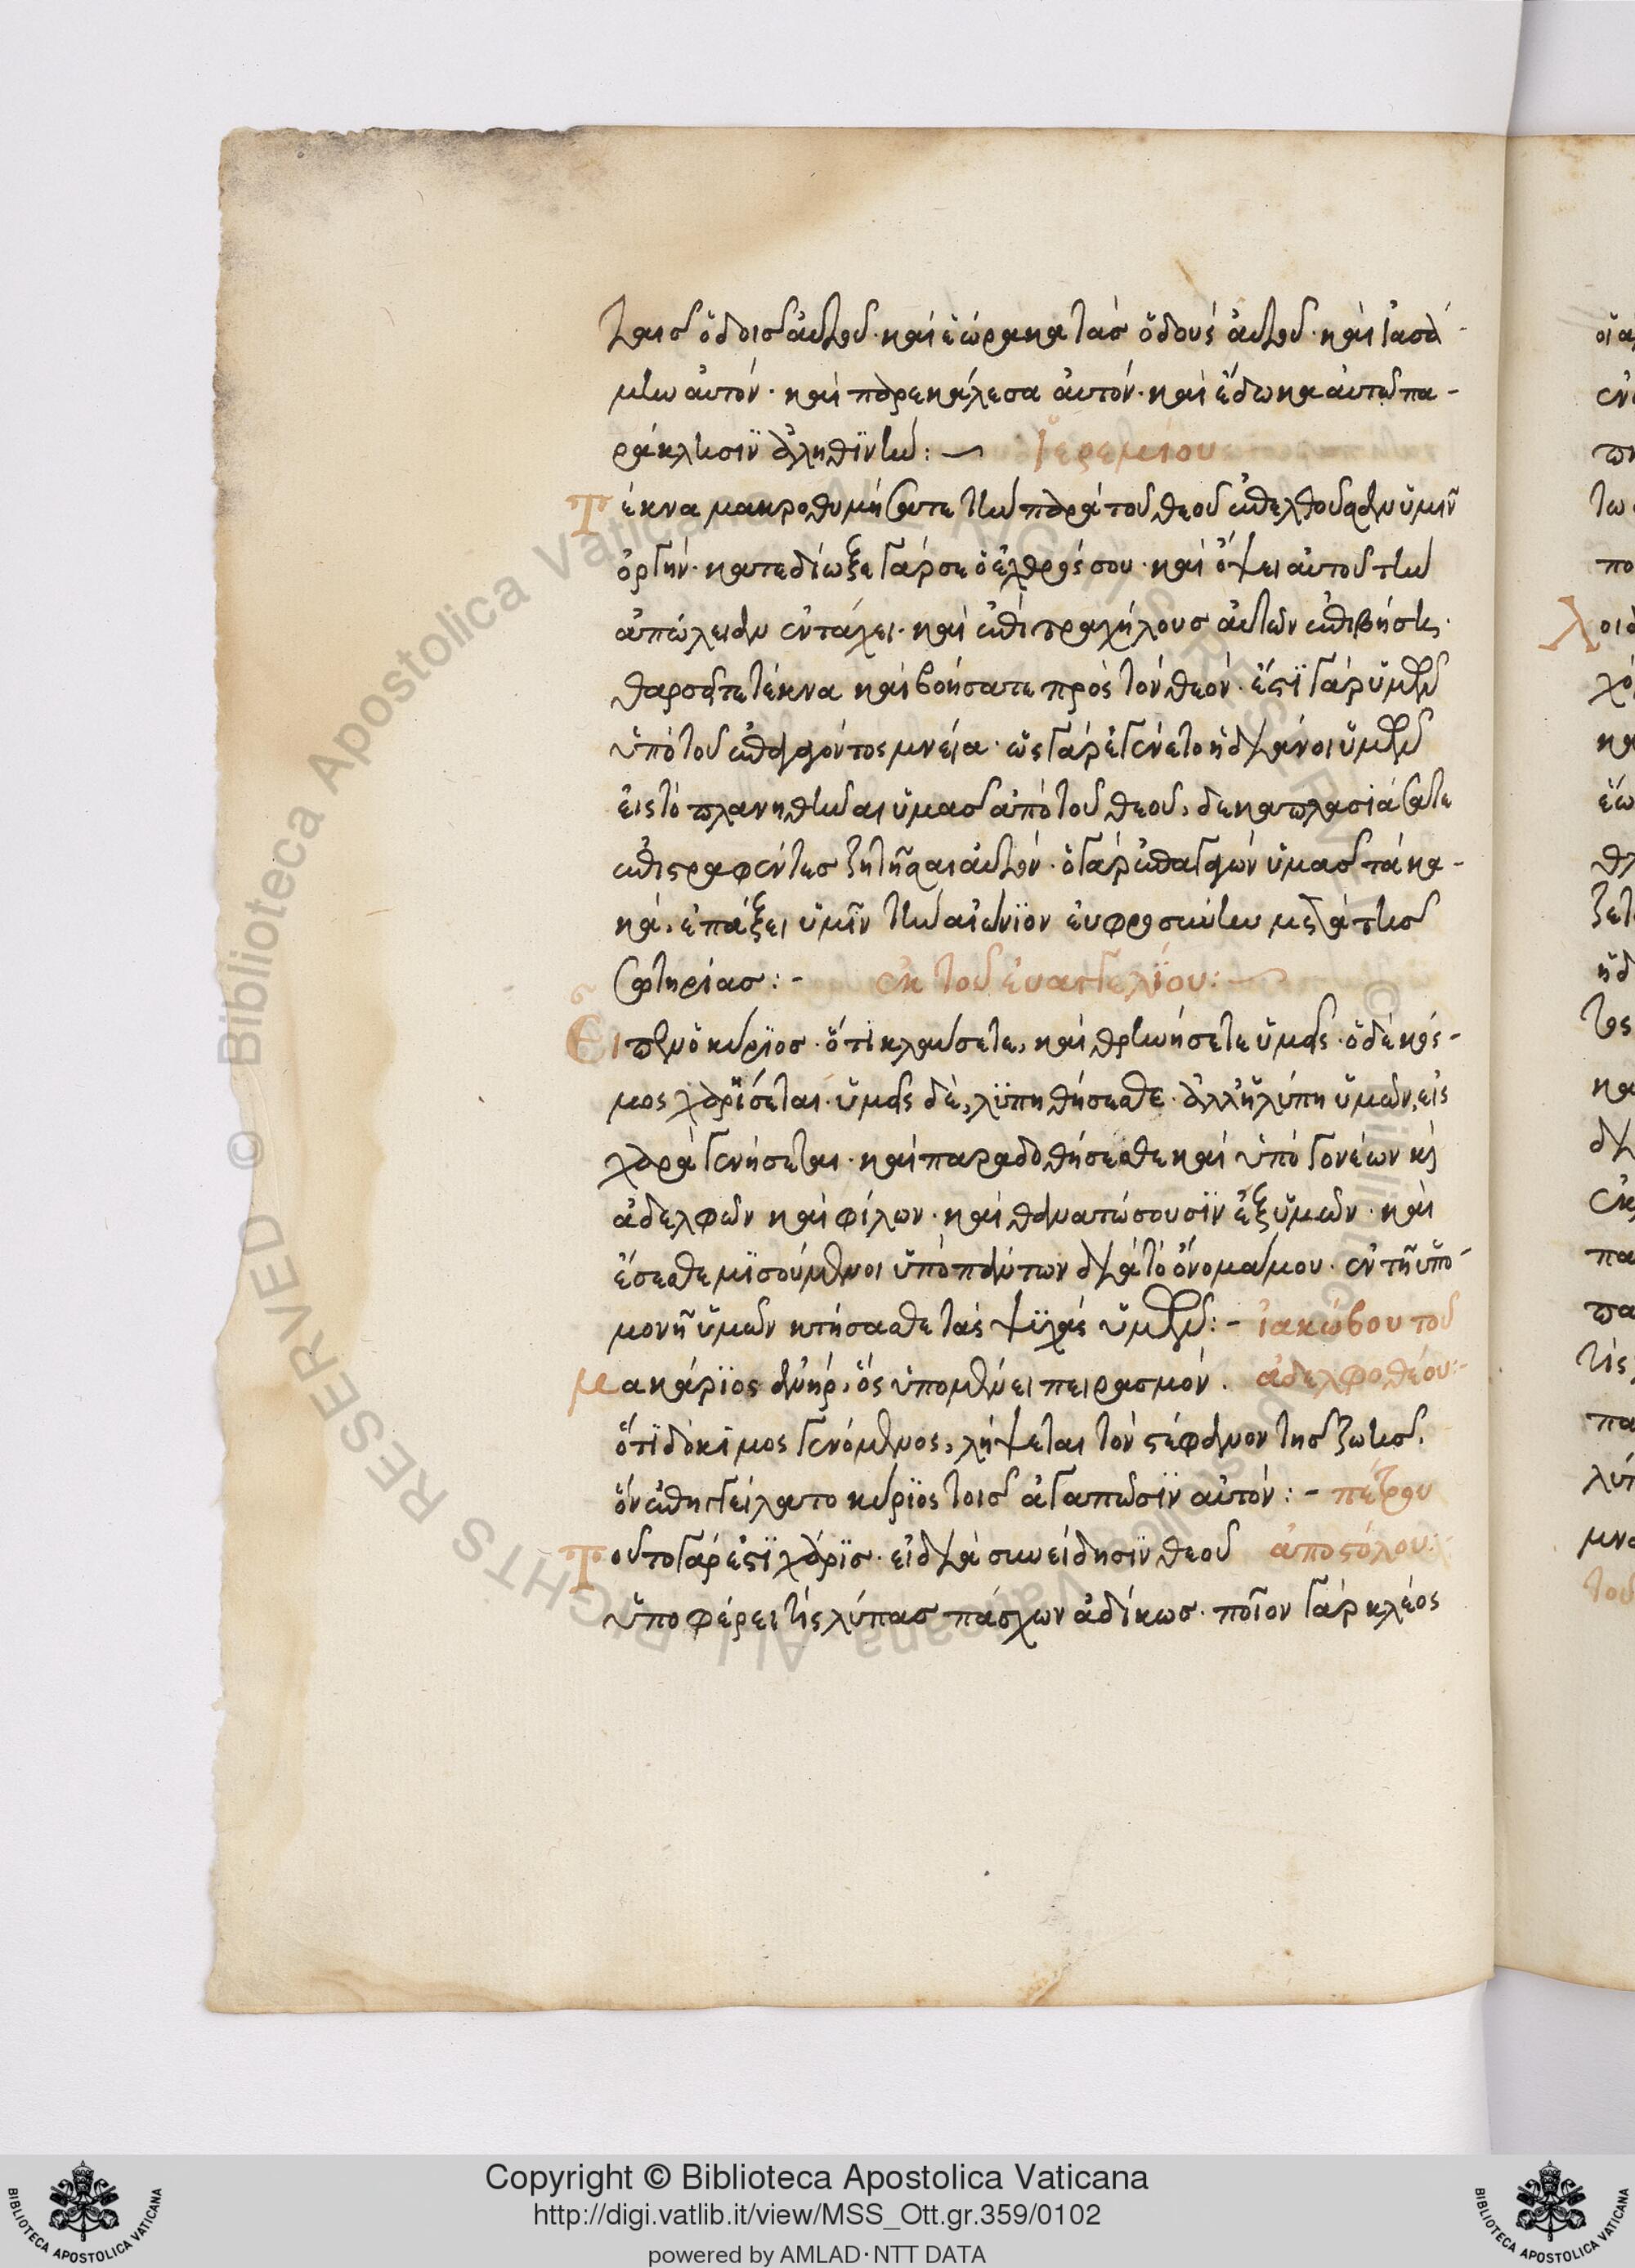 ταῖς ὁδοῖς αὐτοῦ· καὶ ἑώρακα τὰς ὁδούς αὐτοῦ· καὶ ἰασά-
μην αὐτόν· καὶ παρεκάλεσα αὐτόν· καὶ ἔδωκα αὐτῶ πα-
ράκλησϊν ἀληθϊνήν:— Ἱερεμίου
Τέκνα μακροθυμήσατε τὴν παρὰ τοῦ θεοῦ ἐπελθοῦσαν ὑμῖν
ὀργήν· κατεδίωξε γάρ σε ὁ ἐχθρός σου· καὶ ὄψει αὐτοῦ τὴν
ἀπώλειαν ἐν τάχει· καὶ ἐπὶ τραχήλους αὐτῶν ἐπιβήση·
θαρσατε τέκνα καὶ βοήσατε πρὸς τὸν θεόν· ἔστϊ γάρ ὑμῶν
ὑπὸ τοῦ ἐπάγοντος μνεία· ὡς γάρ ἐγένετο ἡ διάνοι ὑμῶν
εἰς τὸ πλανηθῆναι ὑμᾶς ἀπὸ τοῦ θεοῦ, δεκαπλασιάσατε
ἐπιστραφέντες ζητῆσαι αὐτόν· ὁ γάρ ἐπαγαγών ὑμᾶς τά κα-
κά, ἐπάξει ὑμῖν τὴν αἰώνϊον εὐφροσύνην μετὰ τῆς
σωτηρίας:- ἐκ τοῦ εὐαγγελΐου:—
Εἶπεν ὁ κύρϊος· ὅτι κλαύσετε, καὶ θρηνήσετε ὑμεῖς· ὁ δὲ κόσ-
μος χαρΐσεται· ὑμεῖς δὲ, λϋπηθήσεσθε· ἀλλ' ἡ λύπη ὑμῶν, εἰς
χαρὰ γενήσεται· καὶ παραδοθήσεσθε καὶ ὑπὸ γονέων κὶ
ἀδελφῶν καὶ φίλων· καὶ θανατώσουσϊν ἐξ ὑμῶν· καὶ
ἔσεσθε μϊσούμενοι ὑπὸ πάντων διὰ τὸ ὄνομα μου· ἐν τῆ ὑπο-
μονῆ ὑμῶν κτήσασθε τάς ψϋχάς ὑμῶν:- ἰακώβου τοῦ
Μακάρϊος ἀνήρ, ὅς ὑπομένει πειρασμόν. ἀδελφοθέου:-
ὅτϊ δόκιμος γενόμενος, λήψεται τὸν στέφανον τῆς ζωῆς,
ὅν ἐπηγγείλατο κύρϊος τοῖς ἀγαπῶσϊν αὐτόν:- πέτρου
Τοῦτο γάρ ἐστϊ χάρϊς· εἰ διὰ συνείδησϊν θεοῦ ἀποστόλου:
ὑποφέρει τίς λύπας πάσχων ἀδίκως· ποῖον γάρ κλέος
Copyright © Biblioteca Apostolica Vaticana
http://digi.vatlib.it/view/MSS_Ott.gr.359/0102
powered by AMLAD·NTT DATA